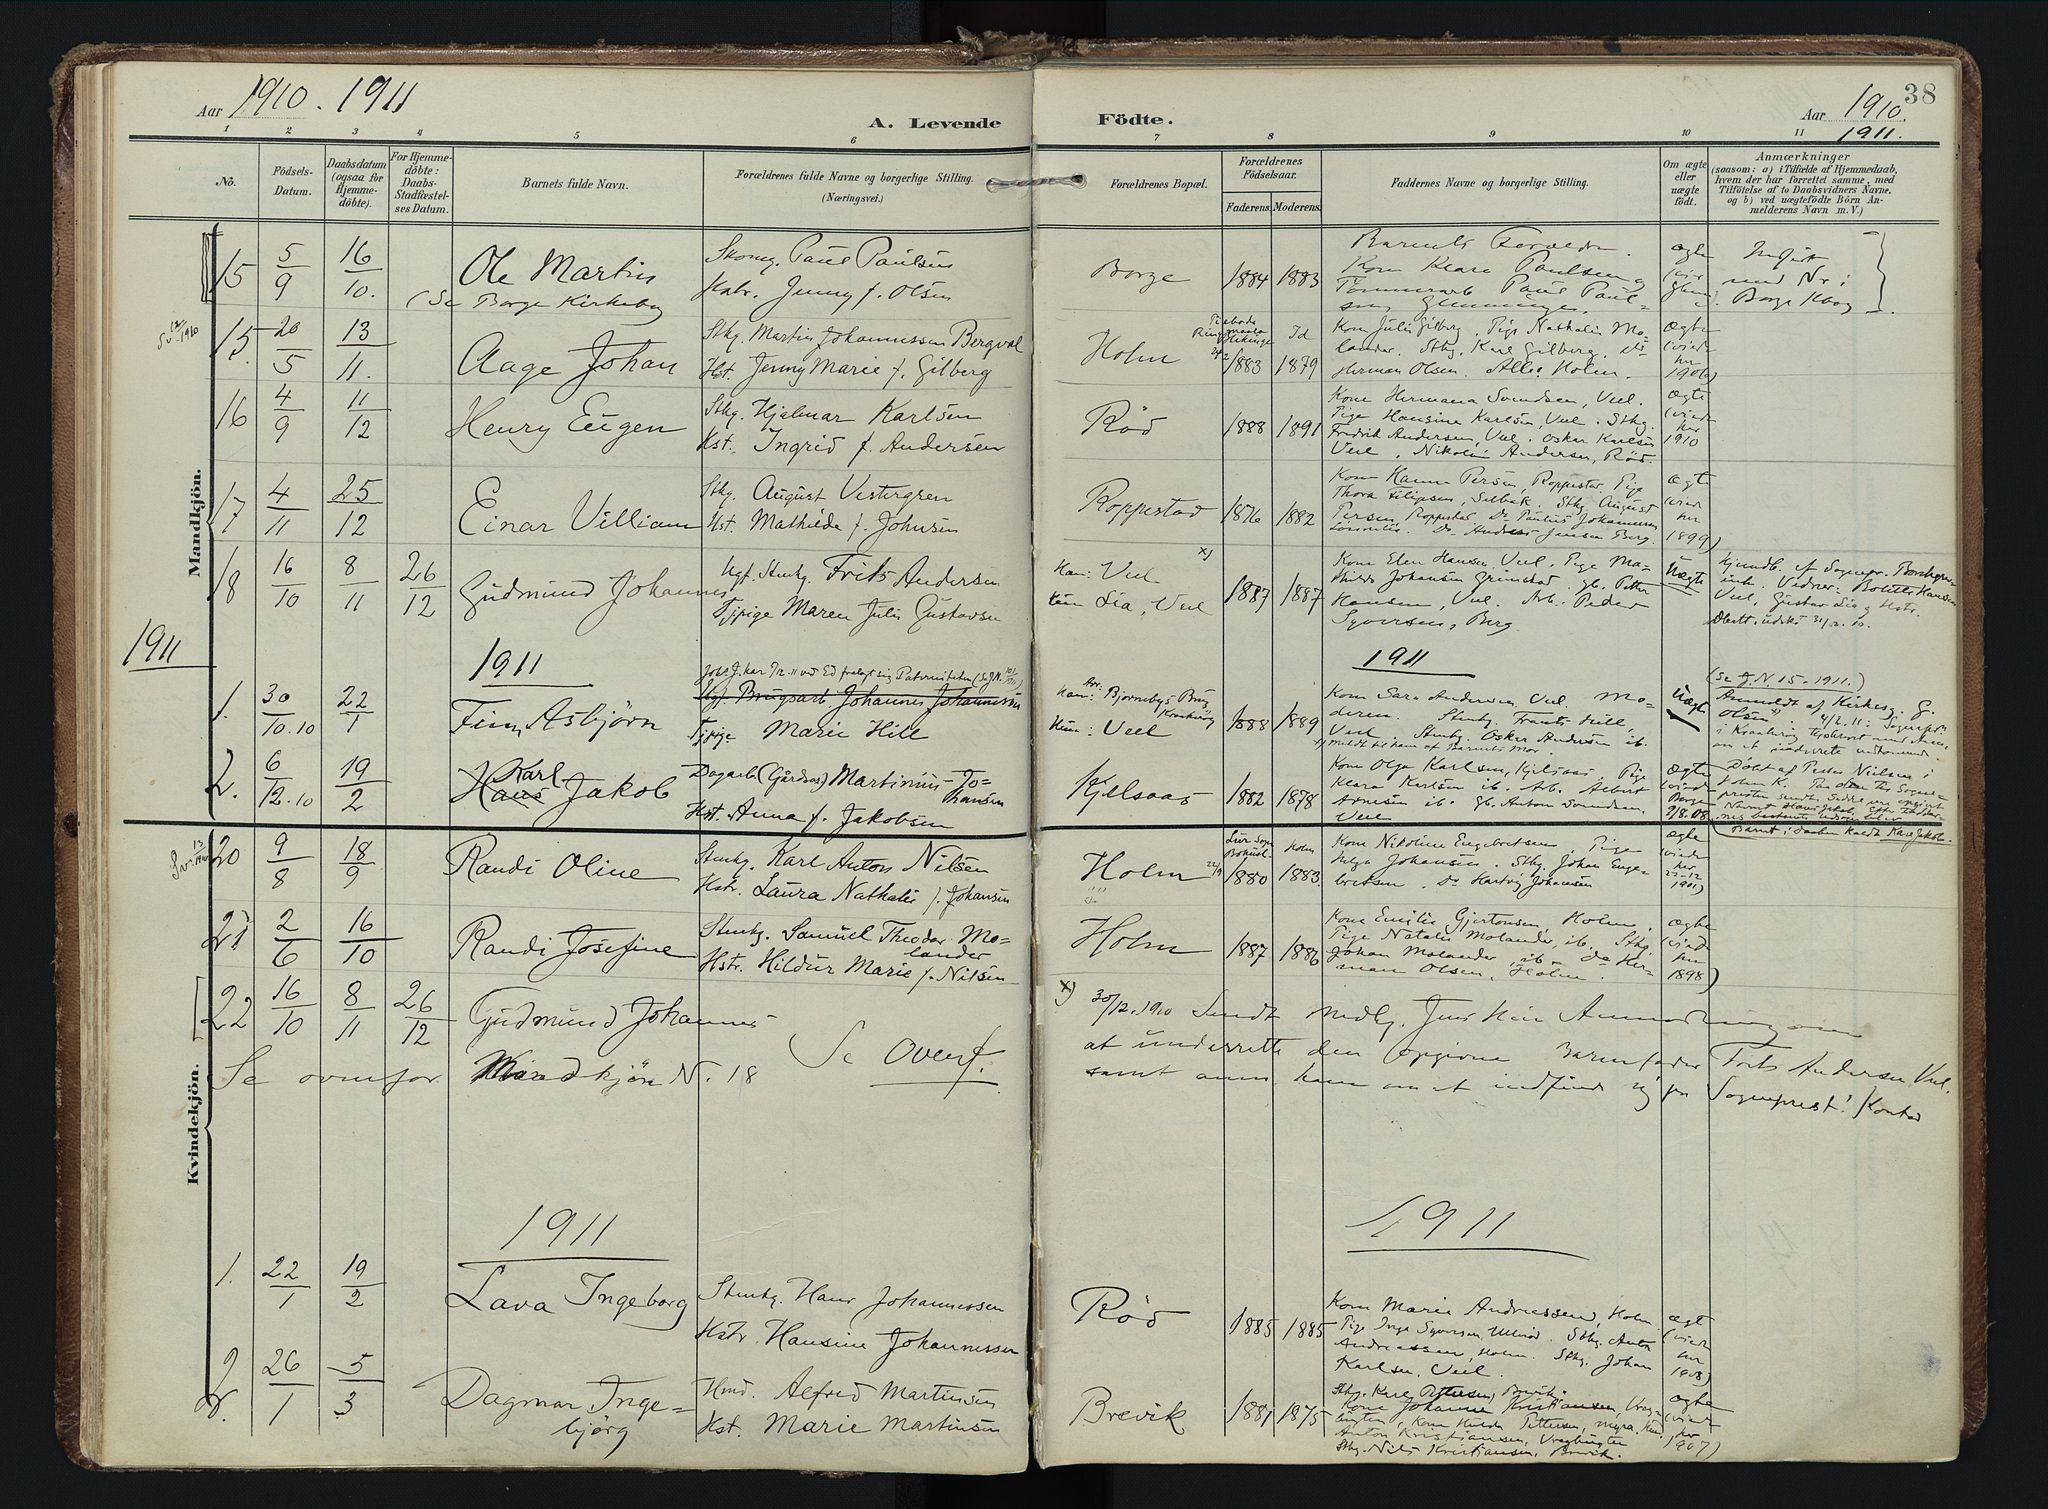 Aar 1910. 1911
A. Levende
Födte.
Aar 1910.
1911.
38
1 2 3 4 5 6 7 8 9 10 11
No.
Födsels-
Datum.
Daabsdatum
(ogsaa for
Hjemme-
döbte).
For Hjemme-
döbte:
Daabs-
Stadfæstel-
ses Datum.
Barnets fulde Navn.
Forældrenes fulde Navne og borgerlige Stilling.
(Næringsvei.)
Forældrenes Bopæl.
Forældrenes
Födselsaar.
Faderens. Moderens.
Faddernes Navne og borgerlige Stilling.
Om ægte
eller
uægte
födt.
Anmærkninger
(saasom: a) i Tilfælde af Hjemmedaab,
hvem der har forrettet samme, med
Tilföielse af to Daabsvidners Navne,
og b) ved uægtefödte Börn An-
melderens Navn m. V.)
Mandkjön.
15 5/9 16/10. Ole Martin
(Se Borge Kirkebog
Paul Paulsen
Jenny f. Olsen
Borge 1884 1883
Barnets Forældre.
Kone Klara Paulsen og
ægte
Indfört
med Nr i
Borge Kbog
15. 20/5 13/11. Aage Johan
Stbg. Martin Johannessen Bergvel
Hst. Jenny Marie f. Gilberg
Holm 1883 1879
Kone Julie Gilberg, Pige Nathalie Mo-
lander. Stbg. Karl Gilberg, do
Herman Olsen. Alle: Holm.
ægte
(viede
her
1906)
16 4/9 11/12 Henry Eugen
Stbg. Hjalmar Karlsen
Hst. Ingrid f. Andersen
Röd 1888 1891
Kone Hermana Svendsen, Veel.
Pige Hansine Karlsen, Veel. Stbg.
Fredrik Andersen, Veel. Oskar Karlsen
Veel, Nikolai Andersen, Röd.
ægte
(viede
her
1910
17 4/11 25/12 Einar Villiam
Stbg. August Vestergren
Hst. Mathilde f. Johnsen
Roppestad 1876 1882
Kone Hanna Persen, Roppestad, Pige
Thora Filipsen, Selbak, Stbg. August
Persen, Roppestad
Andreas Jensen Berg.
ægte
(viede
her
1899)
18 16/10 8/11 26/12 Gudmund Johannes
Ugf. Stenhg. Frits Andersen
Tjpige Maren Julie Gustavsen
Han: Veel x)
Hun Lia, Veel 1887 1887
Kone Elen Hansen Veel. Pige Ma-
thilde Johansen Grimstad, gb. Petter
Hansen, Veel. Arb. Peder
Syversen, Berg.
Uægte
1911
1911
1911
1. 30/10.10 22/1 Finn Asbjörn
Ugf. Brugsarb. Johannes Johannessen
Tjpige Marie Hill
Han: Bjørnebys Brug
Hun: Veel 1888 1889
Kone Sara Andersen Veel. Mo-
deren. Stenhg. Frants Hill,
Veel. Stenhg. Oskar Andersen ib.
Uægte
(Se J.N. 15-1911.)
Anmeldt af Kirkesg. G.
Olsen
2. 6/12.10 19/2 Karl
Hans Jakob
Dagarb (Gårdsas) Martinius Jo-
hansen
Hst. Anna f. Jakobsen
Kjølsaas 1882 1878
Kone Olga Karlsen, Kjølsaas. Pige
Klara Karlsen ib. Arb. Albert
Arnesen ib. gb. Anton Svendsen
Veel
ægte
(viede
Borge
9/8.08
Barnet i daaben kaldt Karl Jakob.
Kvindekjön.
20 9/8 18/9 Randi Oline
Stenhg. Karl Anton Nilsen
Hstr. Laura Nathalie f. Johansen
Holm 1880 1883
Kone Nikoline Engebretsen, Pige
Helga Johansen. Stbg. Johan Enge-
bretsen. Do Hartvig Johansen
ægte
(viede
her
22-12
1901)
21 2/6 16/10 Randi Josefine
Stenhg. Samuel Theodor Mo-
lander
Hstr. Hildur Marie f. Nilsen
Holm 1887 1886
Kone Emilie Gjertonsen, Holm.
Pige Natalie Molander, ib. Stbg.
Johan Molander, ib. do Her-
man Olsen, Holm.
ægte
(viede
her
1898)
22 16/10 8/11 26/12 Gudmund Johannes
Se Ovenf.
Se ovenfor Mandkjön N. 18
x) 30/12.1910 Sendt
at underrette den opgivne Barnefader Frits Andersen Veel.
samt anm. ham om at indfinde sig paa Sogneprest. Kontor
1911
1911
1. 22/1 19/2 Lava Ingeborg
Stenhg. Hans Johannessen
Hstr. Hansine Johannessen
Röd 1885 1885
Kone Marie Andreassen, Holm
Pige Inga Syversen, Ulleröd. Stbg. Anton
Andreassen, Holm. Stbg. Johan
Karlsen, Veel.
ægte
(viede
her
1908)
2. 26/1 5/3 Dagmar Inge-
björg
Hmd. Alfred Martinsen
Hst. Marie Martinsen
Brevik 1881 1875
Stbg. Karl Pettersen, Brevik.
Kone Johanne Kristiansen,
Kone Hilda Pettersen, Myra,
Anton Kristiansen,
Stbg. Nils Kristiansen, Brevik.
ægte
(viede
her
1907)